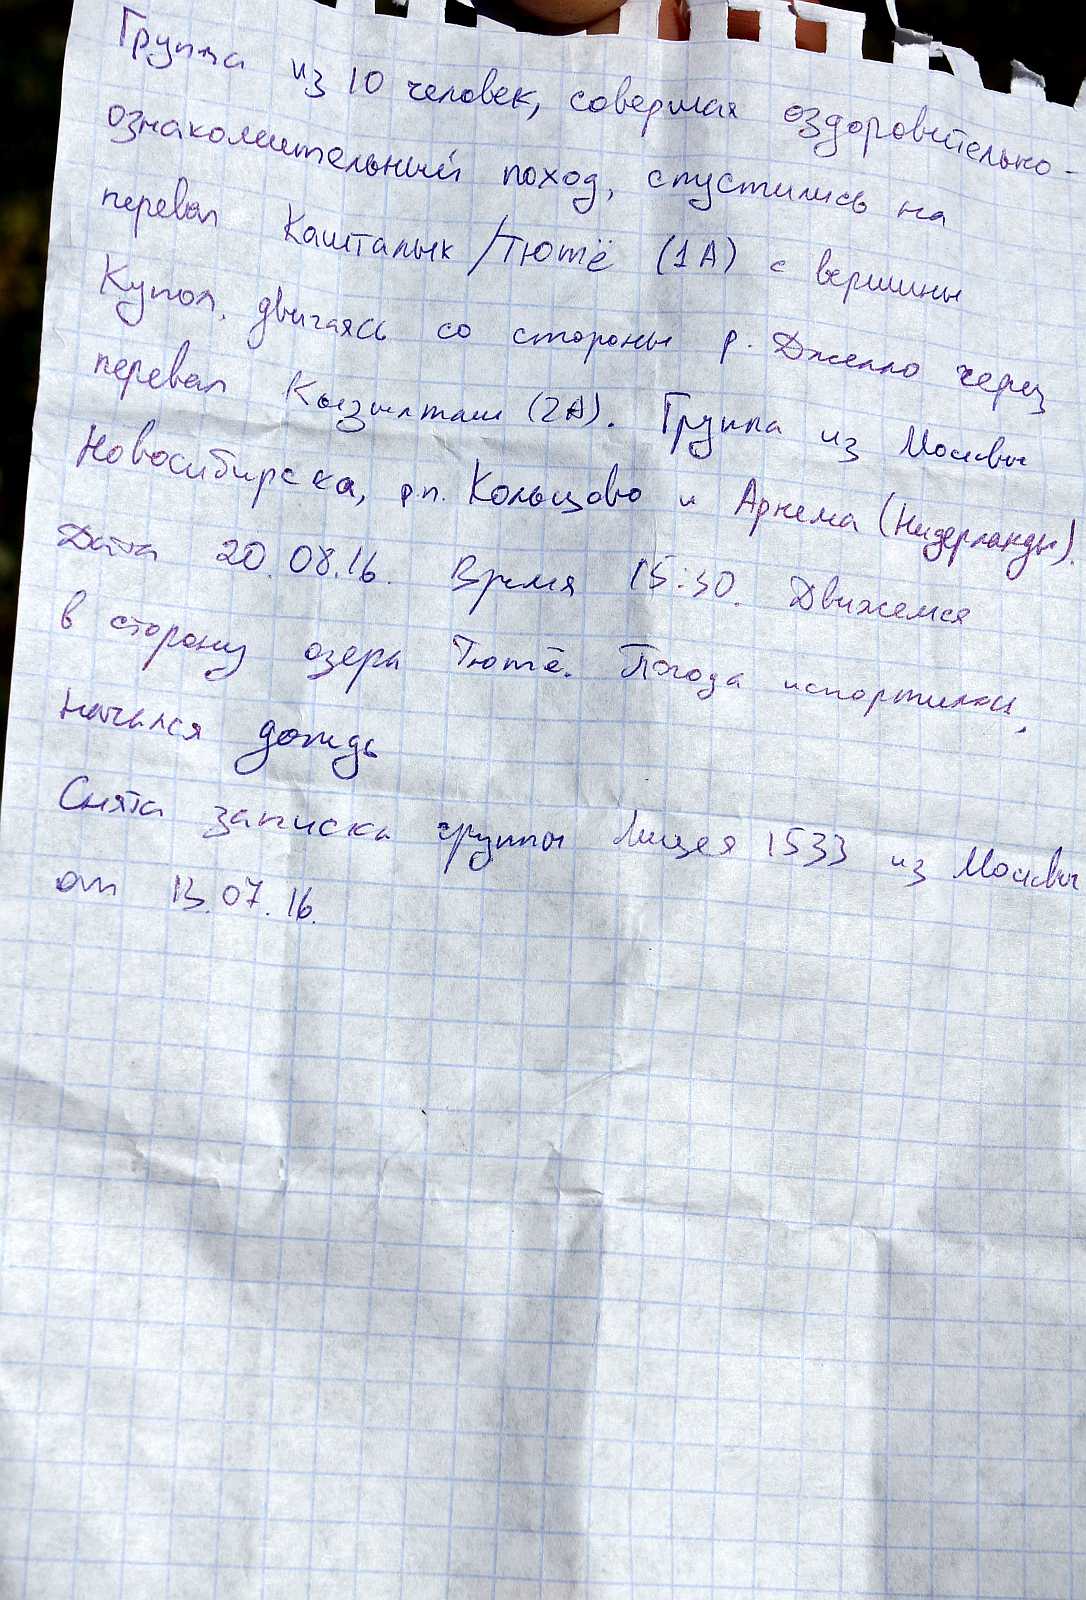 Группа из 10 человек, совершая оздоровительно-
ознакомительный поход, спустились на
перевал Кашталык/Тютё (1А) с вершины
Купол, двигаясь со стороны р. Джелло через
перевал Кызылташ (2А). Группа из Москвы
Новосибирска, р.п. Кольцово и Арнема (Нидерланды).
Дата 20.08.16. Время 15:30. Движемся
в сторону озера Тютё. Погода испортилась,
начался дождь
Снята записка группы Лицея 1533 из Москвы
от 13.07.16.